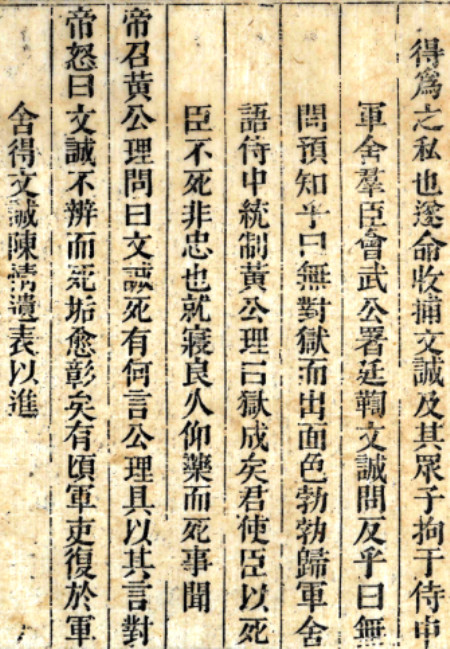 得爲之私也遂命收捕文誠及其眾子拘于侍中
軍舍羣臣會武公署廷鞫文誠問反乎曰無
問預知乎曰無對獄而出面色勃勃歸軍舍
語侍中統制黄公理曰獄成矣君使臣以死
臣不死非忠也就寢良久仰藥而死事聞
帝召黄公理問曰文誠死有何言公理具以其言對
帝怒曰文誠不辨而死垢愈彰矣有頃軍吏復於軍
舍得文誠陳情遺表以進